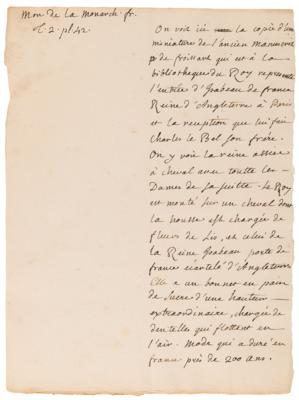 Mon de la Monarch. fr.
T. 2. pl. 42
On voit ici la copie d'un
miniature de l'ancien Manuscrit
de froissart qui est a la
bibliotheque du Roy represente
l'entrée d'Isabeau de france
Reine d'Angleterre a Paris
et la reception que lui fait
Charles le Bel son frére.
On y voit la reine assise
a cheval avec toutte les
Dames de sa suitte. Le Roy
est monté sur un cheval dont
la housse est chargée de
fleurs de Lis, et celui de
la Reine Isabeau porte de
france écartelé d'Angleterre
Elle a un bonnet en pain
de Sucre d'une hauteur
extraordinaire, chargée de
dentelles qui flottent en
l'air. Mode qui a duré en
france prés de 200 ans.